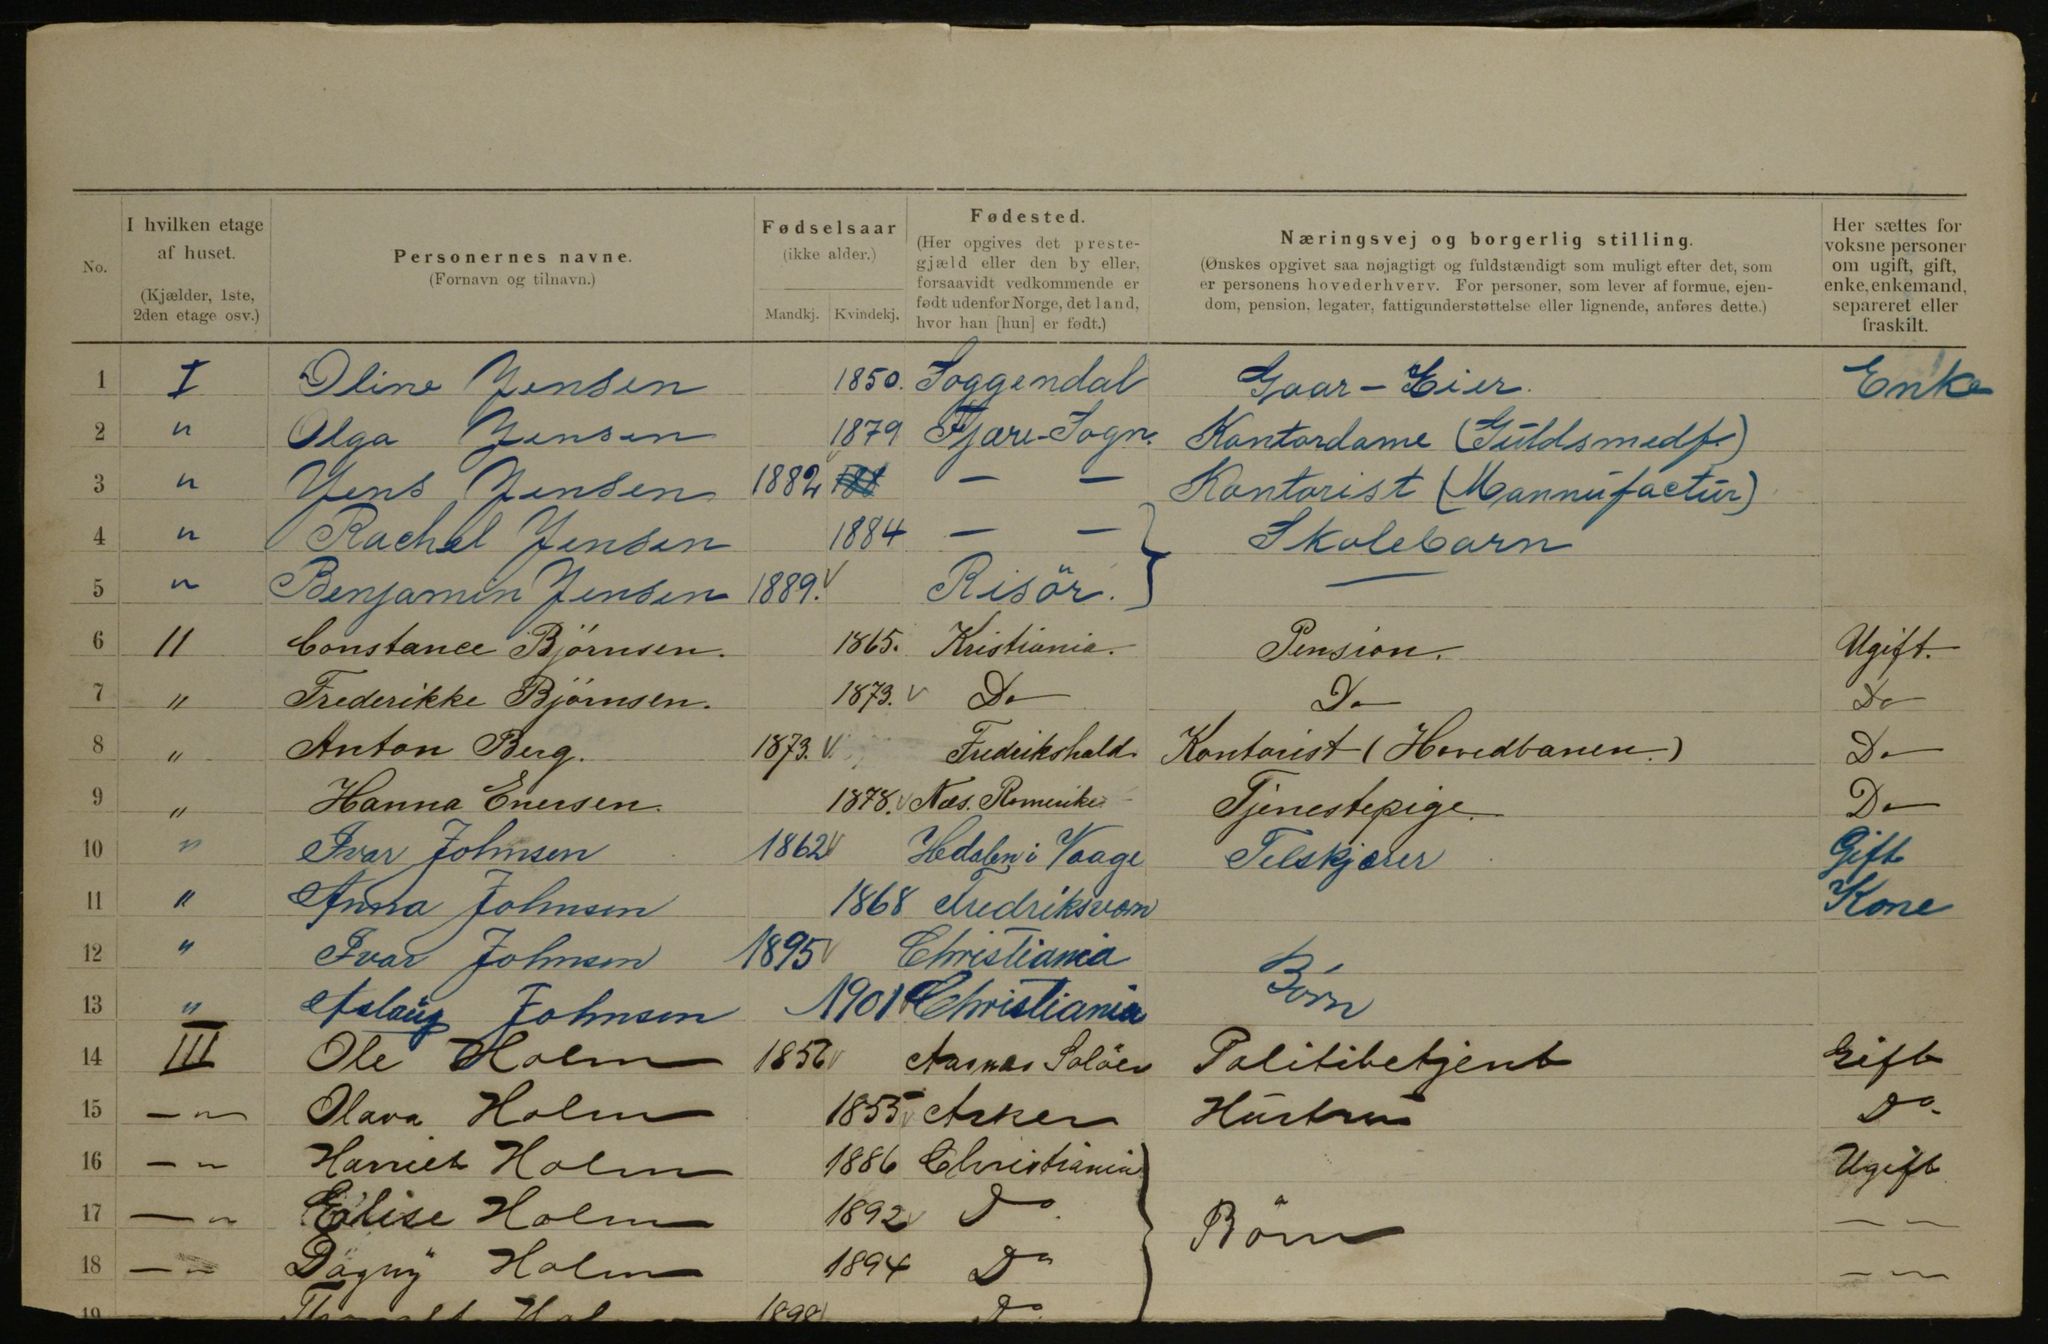 No.
I hvilken etage
af huset.
(Kjælder, 1ste,
2den etage osv.)
Personernes navne.
(Fornavn og tilnavn.)
Fødselsaar
(ikke alder.)
Mandkj. Kvindekj.
Fødested.
(Her opgives det preste-
gjæld eller den by eller,
forsaavidt vedkommende er
født udenfor Norge, det land,
hvor han [hun] er født.)
Næringsvej og borgerlig stilling.
(Ønskes opgivet saa nøjagtigt og fuldstændigt som muligt efter det, som
er personens hovederhverv. For personer, som lever af formue, ejen-
dom, pension, legater, fattigunderstøttelse eller lignende, anføres dette.)
Her sættes for
voksne personer
om ugift, gift,
enke, enkemand,
separeret eller
fraskilt.
1 I Oline Jensen 1850. Soggendal Gaar-Eier. Enke
2 " Olga Jensen 1879 Fjære-Sogn. Kontordame (Guldsmedf.)
3 " Jens Jensen 1882 — — Kontorist (Mannufactur)
4 " Rachel Jensen 1884 — — Skolebarn
5 " Benjamin Jensen 1889. Risör. —
6 II Constance Björnsen. 1865. Kristiania. Pension. Ugift.
7 " Frederikke Björnsen. 1873. Do Do Do
8 " Anton Berg. 1873. Fredrikshald. Kontorist (Hovedbanen.) Do
9 " Hanna Enersen. 1878. Næs. Romerike Tjenestepige. Do
10 " Ivar Johnsen 1862 Hedalen i Vaage Tilskjærer Gift
11 " Anna Johnsen 1868 Fredriksværn Kone
12 " Ivar Johnsen 1895 Christiania
13 " Aslaug Johnsen 1901 Christiania Börn
14 III Ole Holm 1856 Aasnæs Solöer Politibetjent Gift
15 —"— Olava Holm 1855 Asker Hustru Do.
16 —"— Harriet Holm 1886 Christiania Ugift
17 —"— Elise Holm 1892 Do. Börn —"—
18 —"— Dagny Holm 1894 Do —"—
19 Holm Do.